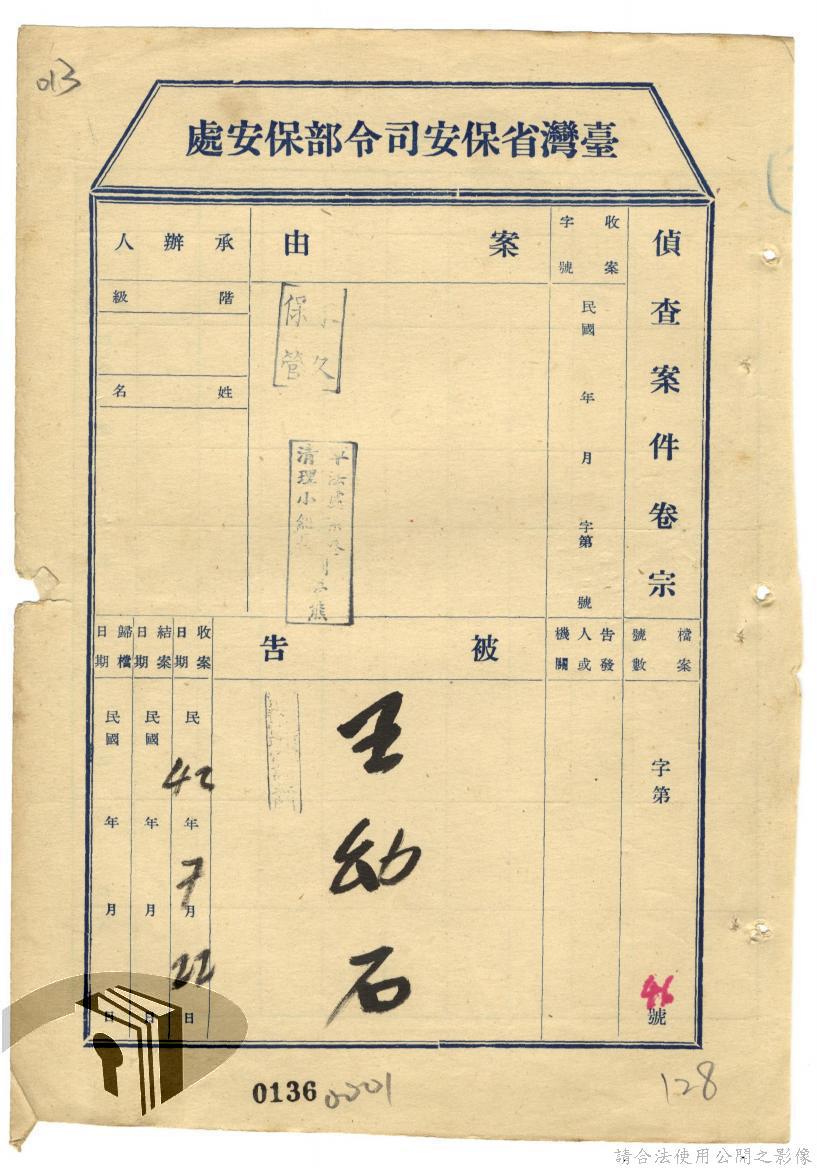 013
臺灣省保安司令部保安處
偵查案件卷宗
檔案號數
字第
46
號
收案字號
民國 年 月 字第 號
告發人或機關
案由
永久保管
清理小組
被告
王幼石
承辦人
階級
姓名
收案日期
民 42 年 7 月 22 日
結案日期
民國 年 月 日
歸檔日期
民國 年 月 日
0136
0001
128
請合法使用公開之影像